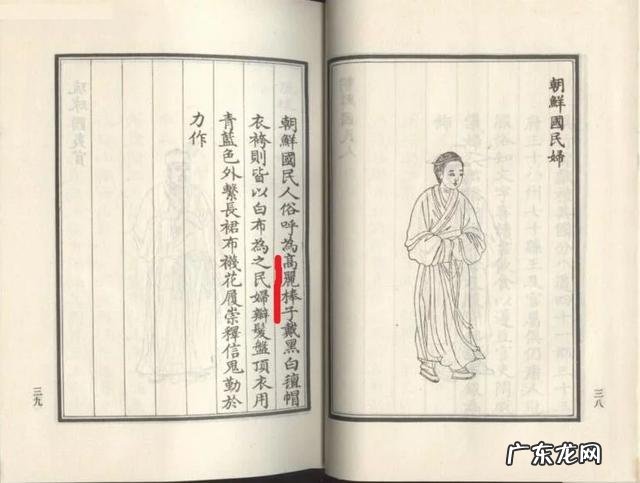 朝鮮國民婦
三八
朝鮮國民人俗呼為高麗棒子戴黑白氊帽
衣袴則皆以白布為之民婦辮髮盤頂衣用
青藍色外繫長裙布襪花履崇釋信鬼勤於
力作
三九
广东龙网